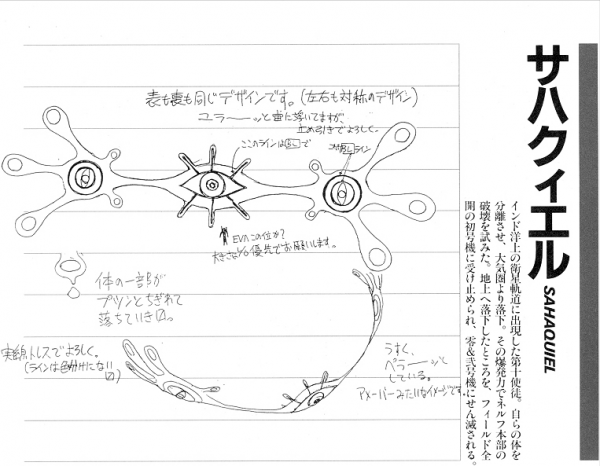 サハクィエル
SAHAQUIEL
インド洋上の衛星軌道に出現した第十使徒。自らの体を
分離させ、大気圏より落下。その爆発力でネルフ本部の
破壊を試みた。地上へ落下したところを、フィールド全
開の初号機に受け止められ、零&弐号機にせん滅される。
表も裏も同じデザインです。(左右も対称のデザイン)
ユラ〜ッと宙に浮いてますが、
止め引きでよろしく。
ここのラインは
で
ライン
EVA この位か?
優先でお願いします。
体の一部が
プツンとちぎれて
落ちていき
実線トレスでよろしく。
(ラインは色
うすく、
ペラ〜ッと
している。
アメーバーみたいなイメージです。